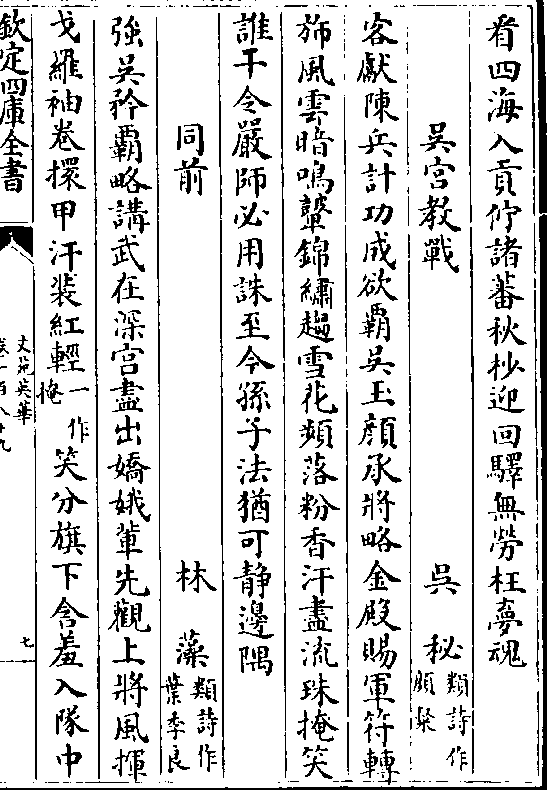 看四海入貢佇諸蕃秋杪迎回驛無勞枉夢魂
吳宮教戰 吳秘類詩作頗粲
客獻陳兵計功成欲霸吳玉顔承將略金殿賜軍符轉
旆風雲暗鳴鼙錦繡趨雪花頻落粉香汗盡流珠掩笑
誰干令嚴師必用誅至今孫子法猶可静邊隅
同前 林藻類詩作葉季良
強吳矜霸略講武在深宫盡出嬌娥軰先觀上將風揮
戈羅袖卷擐甲汗裝紅輕一作掩笑分旗下含羞入隊中
欽定四庫全書
文苑英華
卷一百八十九
七